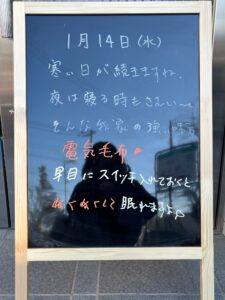 1月14日(水)
寒い日が続きますね。
夜は寝る時もさむい〜
そんな我家の強い味方
電気毛布
早目にスイッチ入れておくと
ぬくぬくして眠れますよ♪